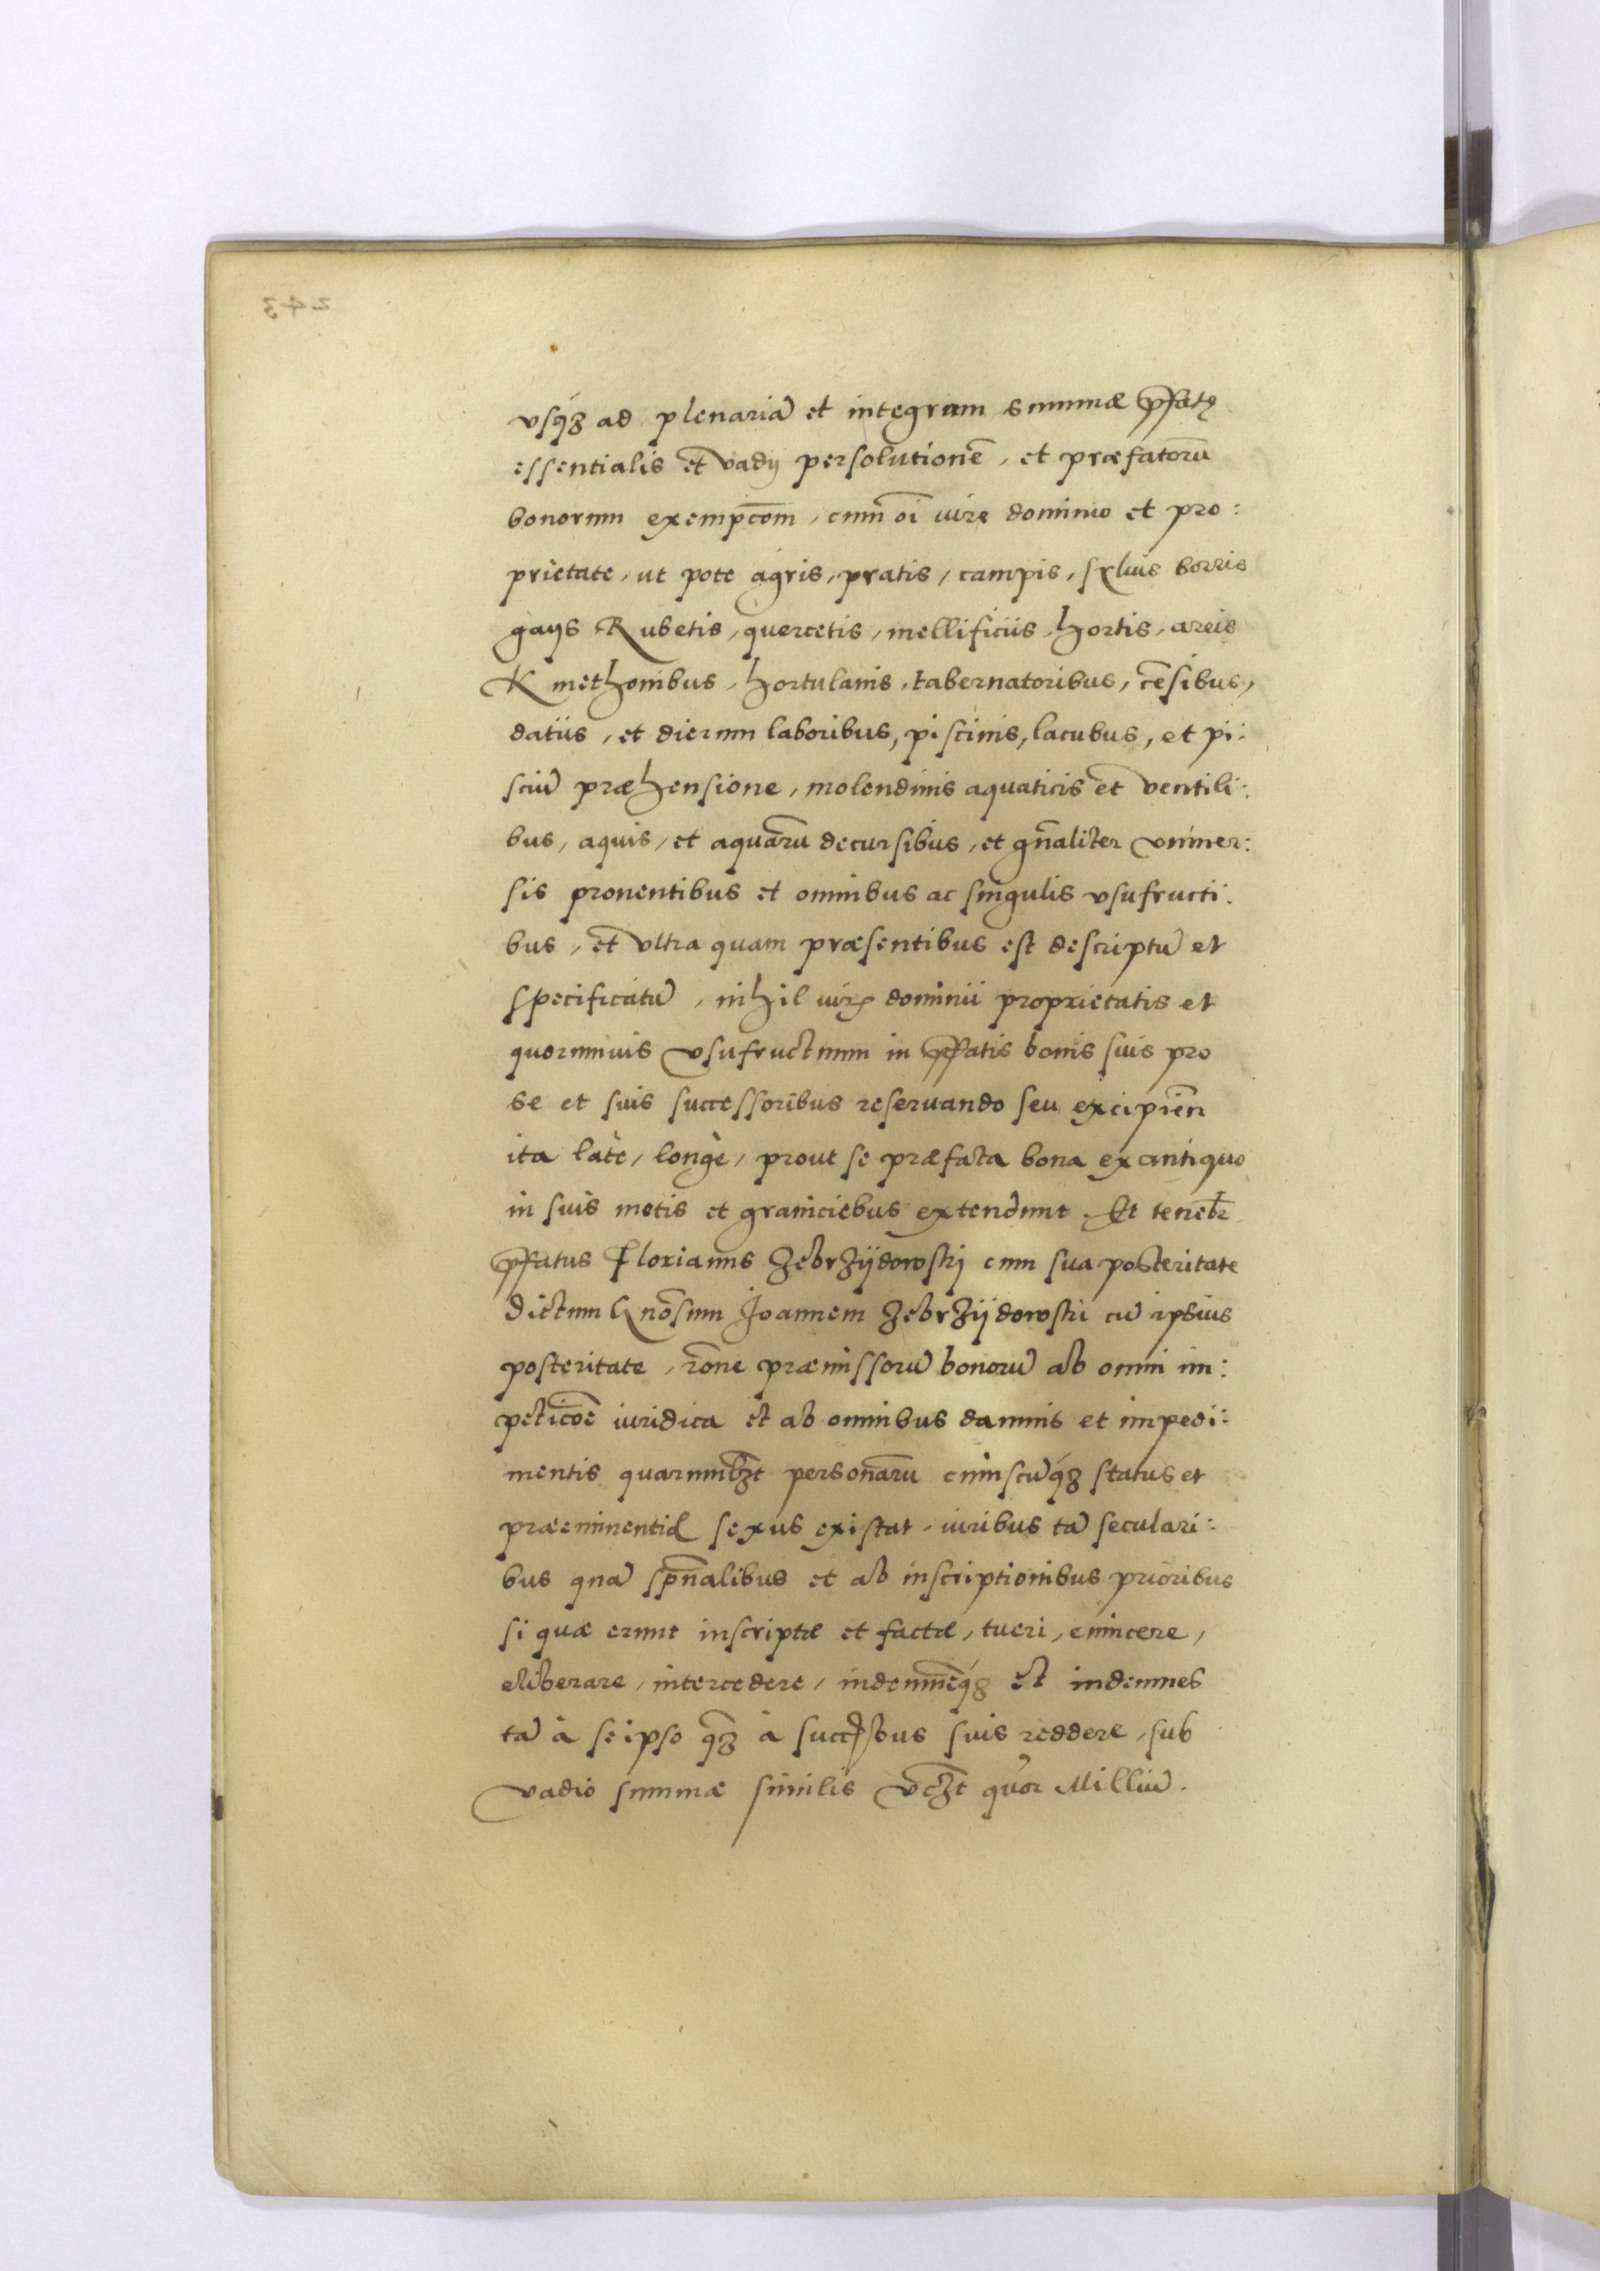 vsq́ꝫ ad plenariã et integram summæ p̃fatę
essentialis et vadij persolutionẽ, et præfatorũ
bonorum exempc̃om, cum oĩ iure dominio et pro:
prietate, ut pote agris, pratis, campis, sylvis borris
gays Rubetis, quercetis, mellificiis, hortis, areis
Kmethonibus, hortulanis, tabernatoribus, cẽsibus,
datiis, et dierum laboribus, piscinis, lacubus, et pi:
sciũ præhensione, molendinis aquaticis et ventili:
bus, aquis, et aquarũ decursibus, et gñaliter vniuer:
sis prouentibus et omnibus ac singulis vsufructi:
bus, et vltra quam præsentibus est descriptũ et
specificatũ, nihil iuris dominii proprietatis et
quorumuis vsufructuum in p̃fatis bonis suis pro
se et suis successoribus reseruando seu excipieñ
ita latè, longè, prout se præfata bona ex antiquo
in suis metis et graniciebus extendunt. Et teneb̃r
p̃fatus Florianus Zebrzijdowskij cum sua posteritate
dictum Gnõsum Joannem Zebrzijdowski cũ ipsius
posteritate, rõne præmissorũ bonorũ ab omni im:
petic̃oẽ iuridica et ab omnibus damnis et impedi:
mentis quarumlib̃ꝫt personarũ cuiuscũq́ꝫ status et
præeminentiæ sexus existat, iuribus tã seculari:
bus quã sp̃ualibus et ab inscriptionibus prioribus
si quæ erunt inscriptæ et factæ, tueri, euincere,
eliberare, intercedere, indemnẽq́ꝫ et indemnes
tã à se ipso q̃ꝫ à succ̃ssoribus suis reddere, sub
vadio summæ similis vc̃ꝫt quõr Milliũ.